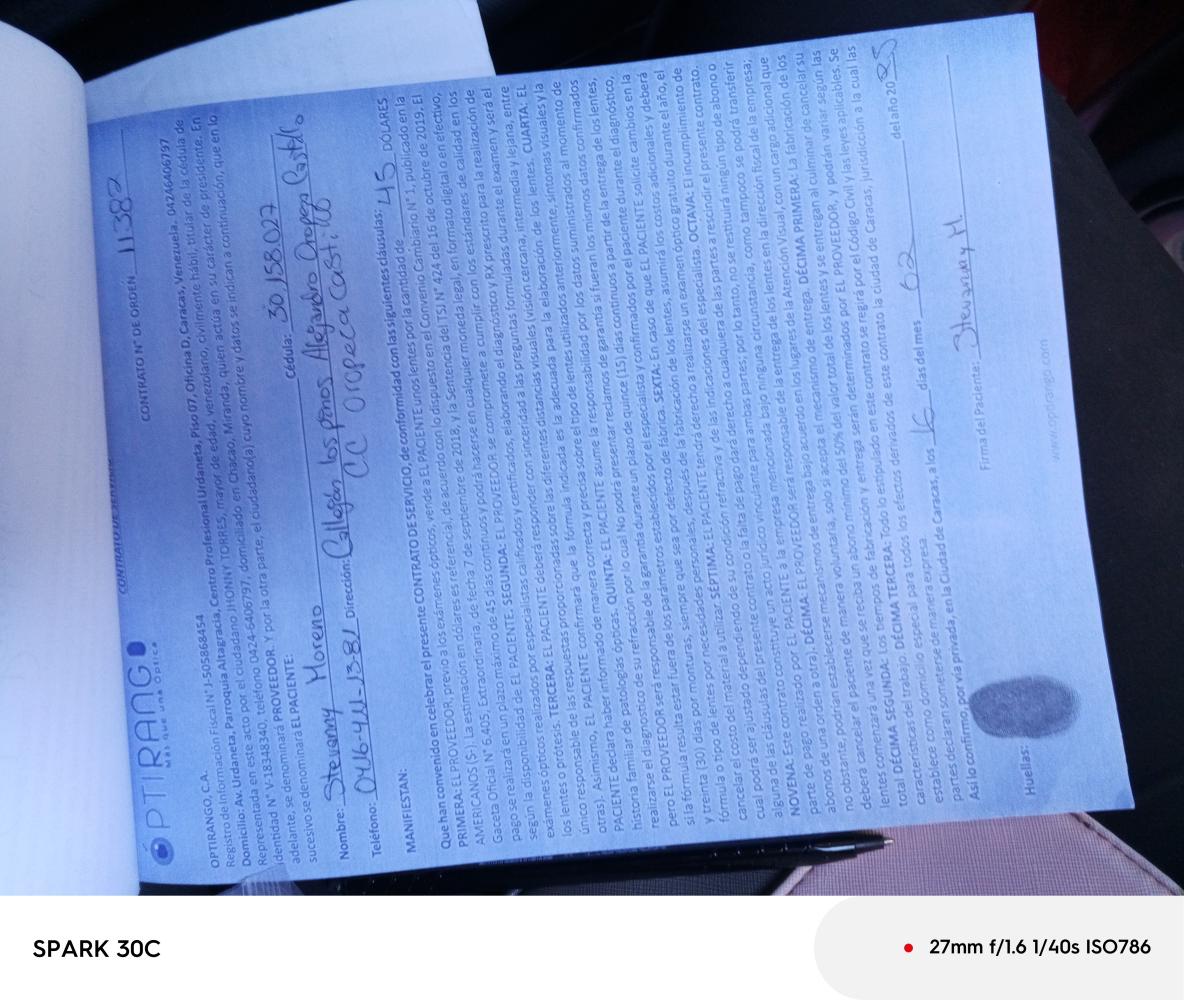 CONTRATO DE SERVICIO
OPTIRANGO
MÁS QUE UNA ÓPTICA
CONTRATO N° DE ORDEN 11382
OPTIRANGO, C.A.
Registro de Información Fiscal N° J-505868454
Domicilio: Av. Urdaneta, Parroquia Altagracia, Centro Profesional Urdaneta, Piso 07, Oficina D, Caracas, Venezuela. 04246406797
Representada en este acto por el ciudadano JHONNY TORRES, mayor de edad, venezolano, civilmente hábil, titular de la cédula de
identidad N° V-18348340, teléfono 0424-6406797, domiciliado en Chacao, Miranda, quien actúa en su carácter de presidente. En
adelante, se denominará PROVEEDOR. Y por la otra parte, el ciudadano(a) cuyo nombre y datos se indican a continuación, que en lo
sucesivo se denominará EL PACIENTE:
Nombre: Stevanny Moreno Cédula: 30158027
Teléfono: 0416-411-1381 Dirección: Callejón los penos Alejandro Oropeza Castillo
CC Oropeca Castillo
MANIFIESTAN:
Que han convenido en celebrar el presente CONTRATO DE SERVICIO, de conformidad con las siguientes cláusulas: 45 DOLARES
PRIMERA: EL PROVEEDOR, previo a los exámenes ópticos, vende a EL PACIENTE unos lentes por la cantidad de
AMERICANOS ($·). La estimación en dólares es referencial, de acuerdo con lo dispuesto en el Convenio Cambiario N° 1, publicado en la
Gaceta Oficial N° 6.405, Extraordinaria, de fecha 7 de septiembre de 2018, y la Sentencia del TSJ N° 424 del 16 de octubre de 2019. El
pago se realizará en un plazo máximo de 45 días continuos y podrá hacerse en cualquier moneda legal, en formato digital o en efectivo,
según la disponibilidad de EL PACIENTE. SEGUNDA: EL PROVEEDOR se compromete a cumplir con los estándares de calidad en los
exámenes ópticos realizados por especialistas calificados y certificados, elaborando el diagnóstico y RX prescrito para la realización de
los lentes o prótesis. TERCERA: EL PACIENTE deberá responder con sinceridad a las preguntas formuladas durante el examen y será el
único responsable de las respuestas proporcionadas sobre las diferentes distancias visuales (visión cercana, intermedia y lejana, entre
otras). Asimismo, EL PACIENTE confirmará que la fórmula indicada es la adecuada para la elaboración de los lentes. CUARTA: EL
PACIENTE declara haber informado de manera correcta y precisa sobre el tipo de lentes utilizados anteriormente, síntomas visuales y la
historia familiar de patologías ópticas. QUINTA: EL PACIENTE asume la responsabilidad por los datos suministrados al momento de
realizarse el diagnóstico de su refracción por lo cual No podrá presentar reclamos de garantía si fueran los mismos datos confirmados
pero EL PROVEEDOR será responsable de la garantía durante un plazo de quince (15) días continuos a partir de la entrega de los lentes,
si la fórmula resulta estar fuera de los parámetros establecidos por el especialista y confirmados por el paciente durante el diagnóstico,
y treinta (30) días por monturas, siempre que sea por defecto de fábrica. SEXTA: En caso de que EL PACIENTE solicite cambios en la
fórmula o tipo de lentes por necesidades personales, después de la fabricación de los lentes, asumirá los costos adicionales y deberá
cancelar el costo del material a utilizar. SÉPTIMA: EL PACIENTE tendrá derecho a realizarse un examen óptico gratuito durante el año, el
cual podrá ser ajustado dependiendo de su condición refractiva y de las indicaciones del especialista. OCTAVA: El incumplimiento de
alguna de las cláusulas del presente contrato o la falta de pago dará derecho a cualquiera de las partes a rescindir el presente contrato.
NOVENA: Este contrato constituye un acto jurídico vinculante para ambas partes; por lo tanto, no se restituirá ningún tipo de abono o
parte de pago realizado por EL PACIENTE a la empresa mencionada bajo ninguna circunstancia, como tampoco se podrá transferir
abonos de una orden a otra). DÉCIMA: EL PROVEEDOR será responsable de la entrega de los lentes en la dirección fiscal de la empresa;
no obstante, podrían establecerse mecanismos de entrega bajo acuerdo en los lugares de la Atención Visual, con un cargo adicional que
deberá cancelar el paciente de manera voluntaria, solo si acepta el mecanismo de entrega. DÉCIMA PRIMERA: La fabricación de los
lentes comenzará una vez que se reciba un abono mínimo del 50% del valor total de los lentes y se entregan al culminar de cancelar su
total DÉCIMA SEGUNDA: Los tiempos de fabricación y entrega serán determinados por EL PROVEEDOR, y podrán variar según las
características del trabajo. DÉCIMA TERCERA: Todo lo estipulado en este contrato se regirá por el Código Civil y las leyes aplicables. Se
establece como domicilio especial para todos los efectos derivados de este contrato la ciudad de Caracas, jurisdicción a la cual las
partes declaran someterse de manera expresa.
Así lo confirmo, por vía privada, en la Ciudad de Caracas, a los 16 días del mes 02 del año 2025
Huellas: Firma del Paciente: Stevanny M.
www.optirango.com
SPARK 30C
27mm f/1.6 1/40s ISO786